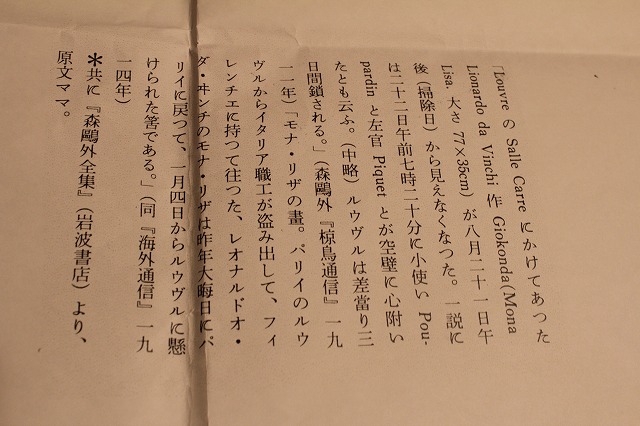 「Louvre の Salle Carre にかけてあつた
Lionardo da Vinchi 作 Giokonda (Mona
Lisa. 大さ 77×35cm) が八月二十一日午
後(掃除日)から見えなくなつた。一説に
は二十二日午前七時二十分に小使い Pou-
pardin と左官 Piquet とが空壁に心附い
たとも云ふ。(中略)ルウヴルは差當り三
日間鎖される。」(森鷗外『椋鳥通信』一九
一一年)「モナ・リザの畫。パリイのルウ
ヴルからイタリア職工が盗み出して、フィ
レンチエに持つて往つた、レオナルドオ・
ダ・ヰンチのモナ・リザは昨年大晦日にパ
リイに戻つて、一月四日からルウヴルに懸
けられた筈である。」(同『海外通信』一九
一四年)
＊共に『森鷗外全集』(岩波書店)より、
原文ママ。